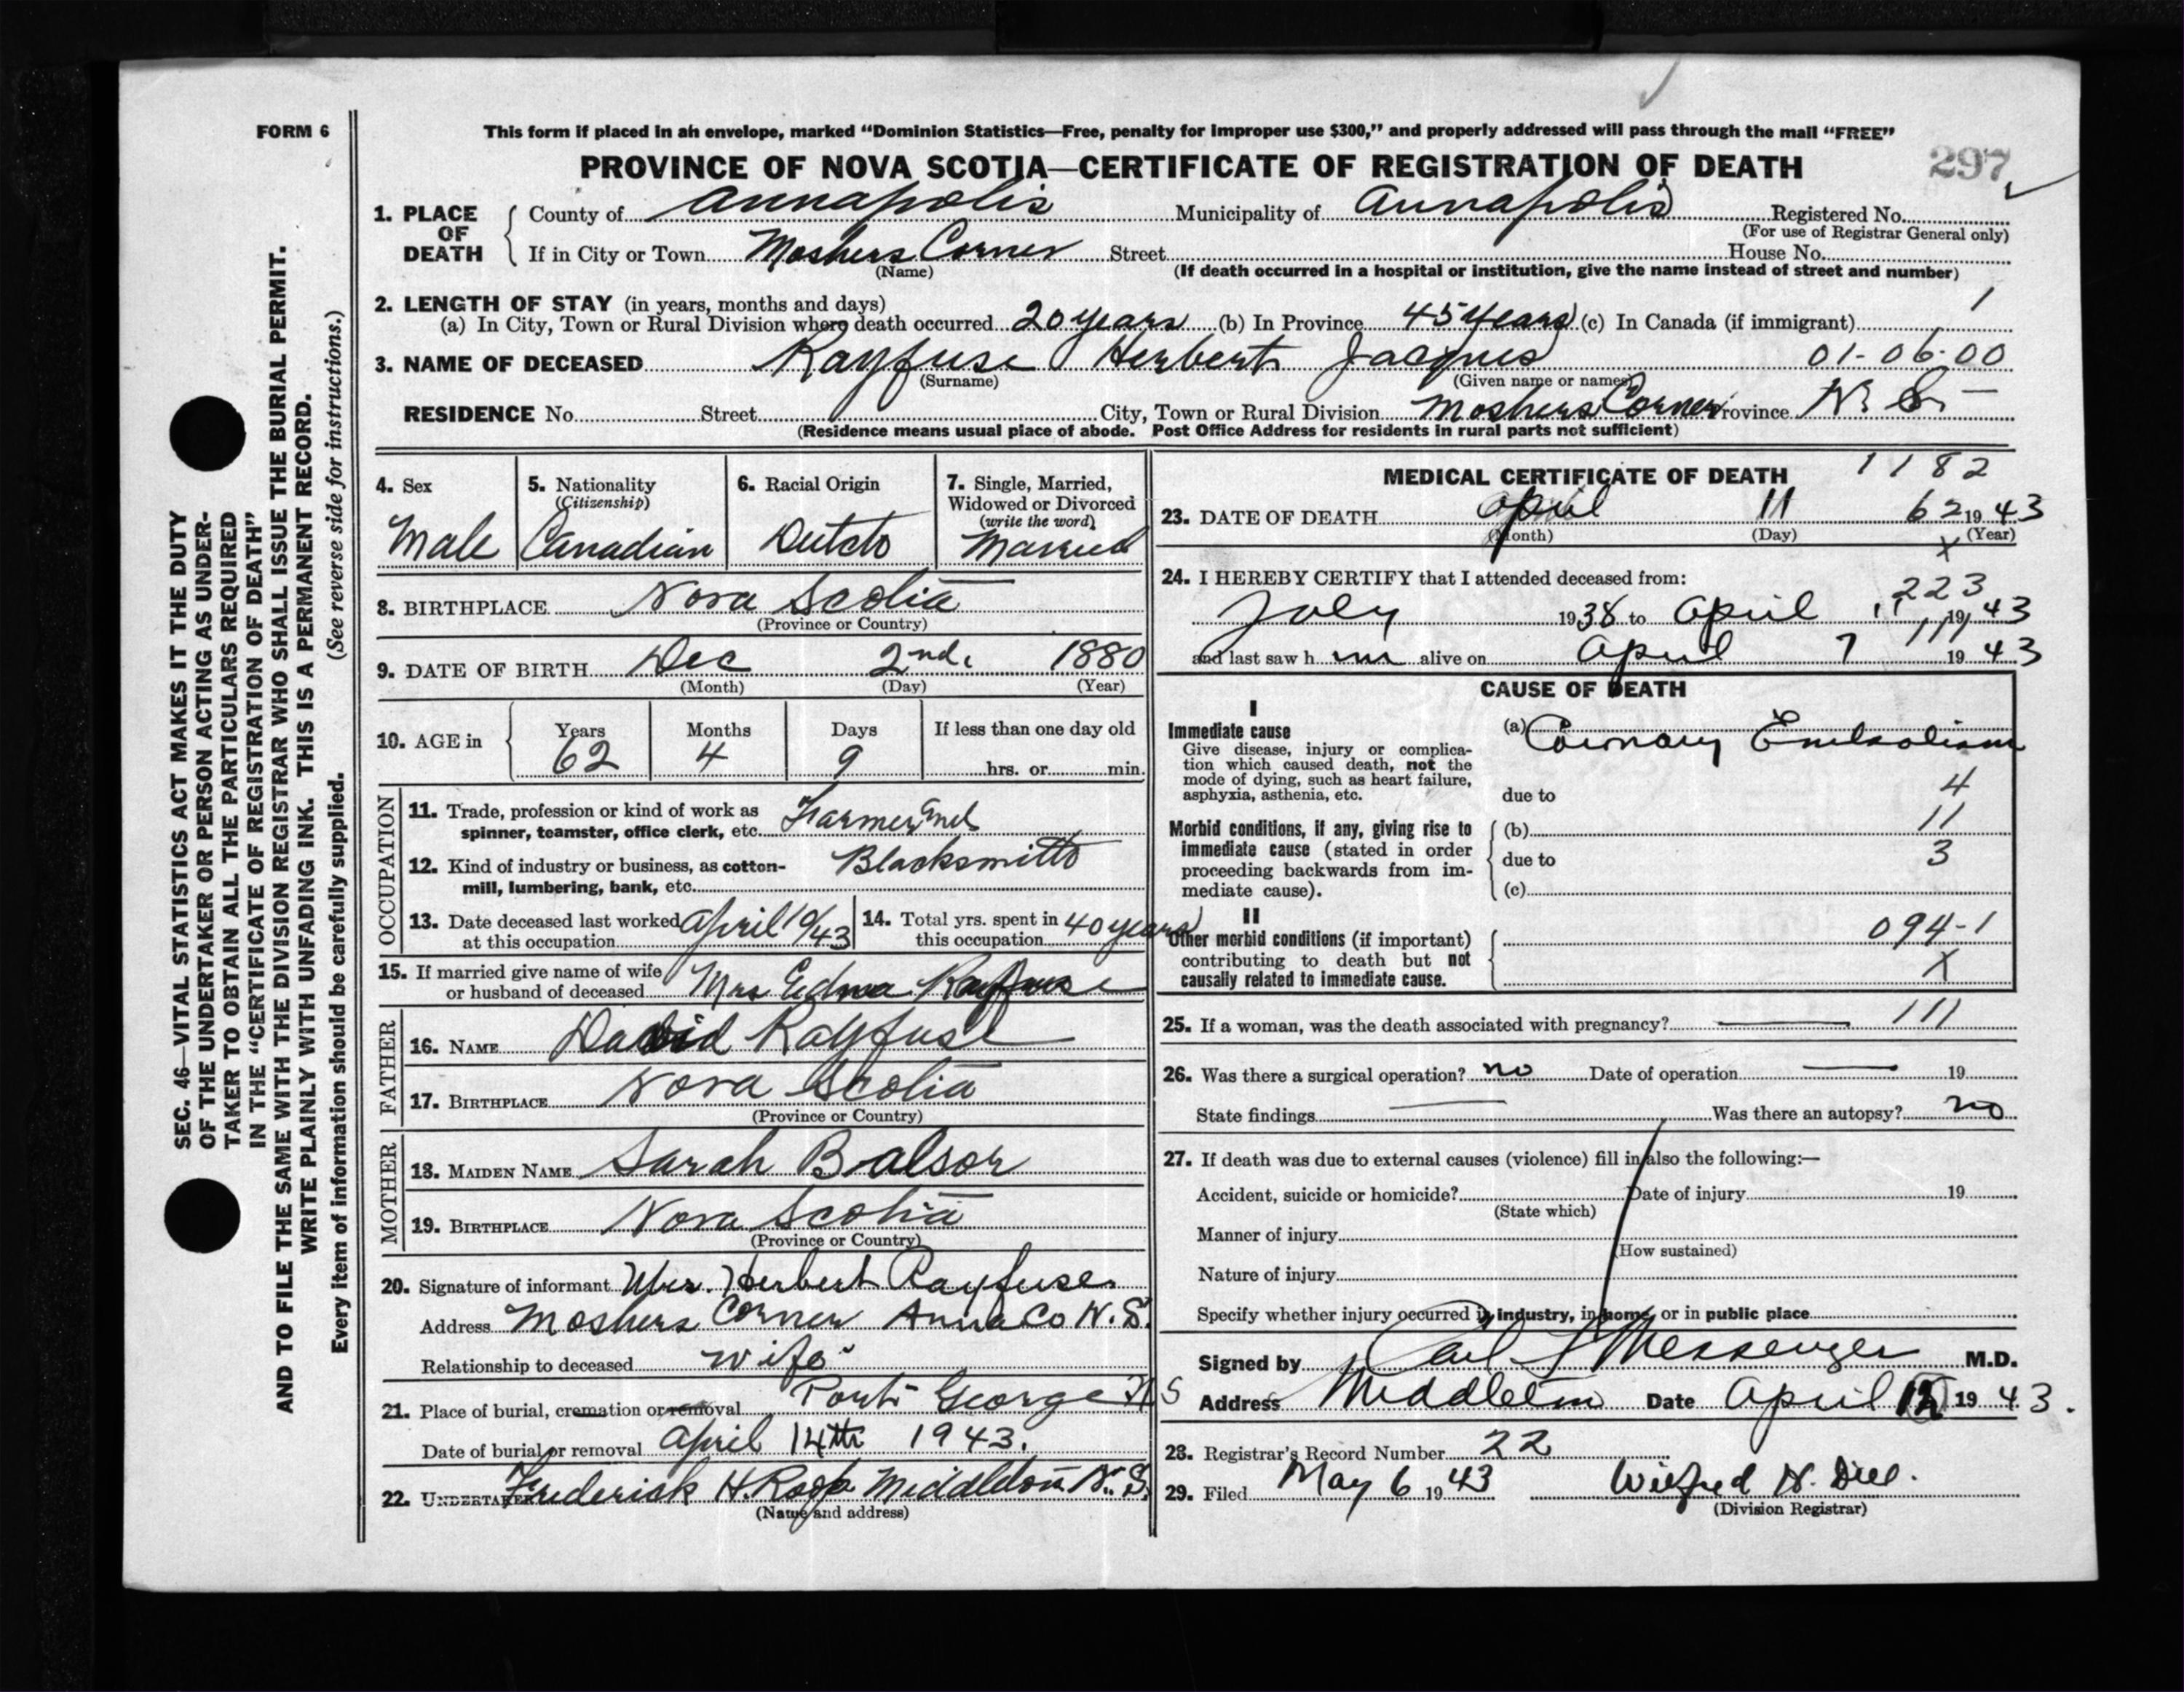 FORM 6
This form if placed in an envelope, marked "Dominion Statistics—Free, penalty for improper use $300," and properly addressed will pass through the mail "FREE"
PROVINCE OF NOVA SCOTIA—CERTIFICATE OF REGISTRATION OF DEATH
297
1. PLACE OF DEATH
County of Annapolis Municipality of Annapolis Registered No.
(For use of Registrar General only)
If in City or Town Moshers Corner Street House No.
(Name) (If death occurred in a hospital or institution, give the name instead of street and number)
2. LENGTH OF STAY (in years, months and days) 1
(a) In City, Town or Rural Division where death occurred 20 years (b) In Province 45 years (c) In Canada (if immigrant)
3. NAME OF DECEASED Rayfuse Herbert Jacques 01-06-00
(Surname) (Given name or names)
RESIDENCE No. Street City, Town or Rural Division Moshers Corner Province N. S.
(Residence means usual place of abode. Post Office Address for residents in rural parts not sufficient)
4. Sex
Male
5. Nationality
(Citizenship)
Canadian
6. Racial Origin
Dutch
7. Single, Married,
Widowed or Divorced
(write the word)
Married
8. BIRTHPLACE Nova Scotia
(Province or Country)
9. DATE OF BIRTH Dec 2nd. 1880
(Month) (Day) (Year)
10. AGE in
Years Months Days If less than one day old
62 4 9 hrs. or min.
OCCUPATION
11. Trade, profession or kind of work as
spinner, teamster, office clerk, etc. Farmer and
12. Kind of industry or business, as cotton-
mill, lumbering, bank, etc. Blacksmith
13. Date deceased last worked
at this occupation April 10/43
14. Total yrs. spent in
this occupation 40 years
15. If married give name of wife
or husband of deceased Mrs Edna Rayfuse
FATHER
16. NAME David Rayfuse
17. BIRTHPLACE Nova Scotia
(Province or Country)
MOTHER
18. MAIDEN NAME Sarah Balsor
19. BIRTHPLACE Nova Scotia
(Province or Country)
20. Signature of informant Mrs. Herbert Rayfuse.
Address Moshers Corner Anna Co N.S.
Relationship to deceased wife
21. Place of burial, cremation or removal Port George N S
Date of burial or removal April 14th 1943.
22. UNDERTAKER Frederick H. Roop Middleton N. S.
(Name and address)
MEDICAL CERTIFICATE OF DEATH 1182
23. DATE OF DEATH April 11 62 1943
(Month) (Day) (Year)
X
24. I HEREBY CERTIFY that I attended deceased from:
223
July 1938 to April 11 1943
111
and last saw h im alive on April 7 1943
CAUSE OF DEATH
I
Immediate cause
Give disease, injury or complica-
tion which caused death, not the
mode of dying, such as heart failure,
asphyxia, asthenia, etc.
(a) Coronary Embolism
due to 4
Morbid conditions, if any, giving rise to
immediate cause (stated in order
proceeding backwards from im-
mediate cause).
(b) 11
due to 3
(c)
II
Other morbid conditions (if important)
contributing to death but not
causally related to immediate cause.
094-1
X
25. If a woman, was the death associated with pregnancy? — 111
26. Was there a surgical operation? no Date of operation — 19
State findings — Was there an autopsy? no
27. If death was due to external causes (violence) fill in also the following:—
Accident, suicide or homicide? Date of injury 19
(State which)
Manner of injury
(How sustained)
Nature of injury
Specify whether injury occurred in industry, in home, or in public place
Signed by Carl L Messenger M.D.
Address Middleton Date April 12 1943.
28. Registrar's Record Number 22
29. Filed May 6 1943 Wilfred H. Dill.
(Division Registrar)
SEC. 46—VITAL STATISTICS ACT MAKES IT THE DUTY
OF THE UNDERTAKER OR PERSON ACTING AS UNDER-
TAKER TO OBTAIN ALL THE PARTICULARS REQUIRED
IN THE "CERTIFICATE OF REGISTRATION OF DEATH"
AND TO FILE THE SAME WITH THE DIVISION REGISTRAR WHO SHALL ISSUE THE BURIAL PERMIT.
WRITE PLAINLY WITH UNFADING INK. THIS IS A PERMANENT RECORD.
Every item of information should be carefully supplied. (See reverse side for instructions.)